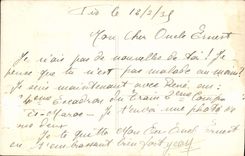 Fès le 18/2/35
Mon Cher Oncle Ernest
Je n'ais pas de nouvelle de toi! Je
pense que tu n'est pas malade au moins
Je suis maintenant avec René au:
4ème Escadron du Train 2ème Comp
Fès-Maroc. Je t'envoi une photo de
nos deux
Je te quitte Mon Cher Oncle Ernest
en t'embrassant bien fort